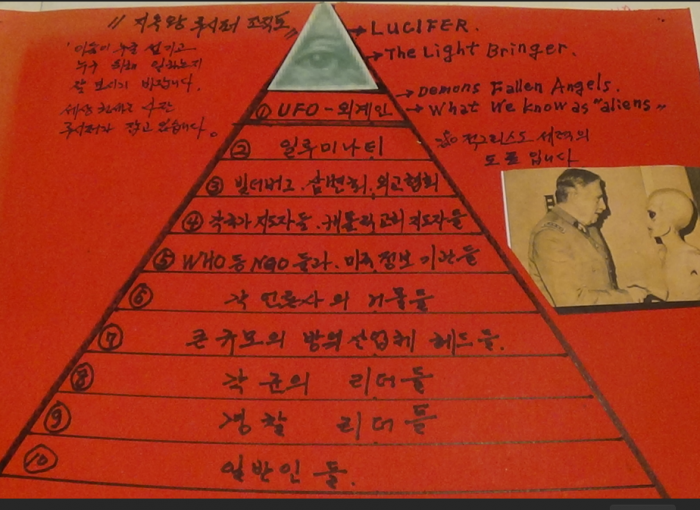 "지옥왕 루시퍼 조직도"
→ LUCIFER.
→ The Light Bringer.
이들이 누굴 섬기고
누구 위해 일하는지
잘 보시기 바랍니다.
세상 권세를
루시퍼가 잡고 있습니다。
→ Demons Fallen Angels.
→ What We know as "aliens"
① UFO - 외계인
적그리스도 세력의
도표 입니다
② 일루미나티
③ 빌더버그. 삼변회. 외교협회
④ 각국가 지도자들. 캐톨릭교회 지도자들
⑤ WHO 등 NGO 들과. 미국 정보 기관들
⑥ 각 언론사의 거물들
⑦ 큰 규모의 방위산업체 헤드들.
⑧ 각 군의 리더들
⑨ 경찰 리더들
⑩ 일반인들.